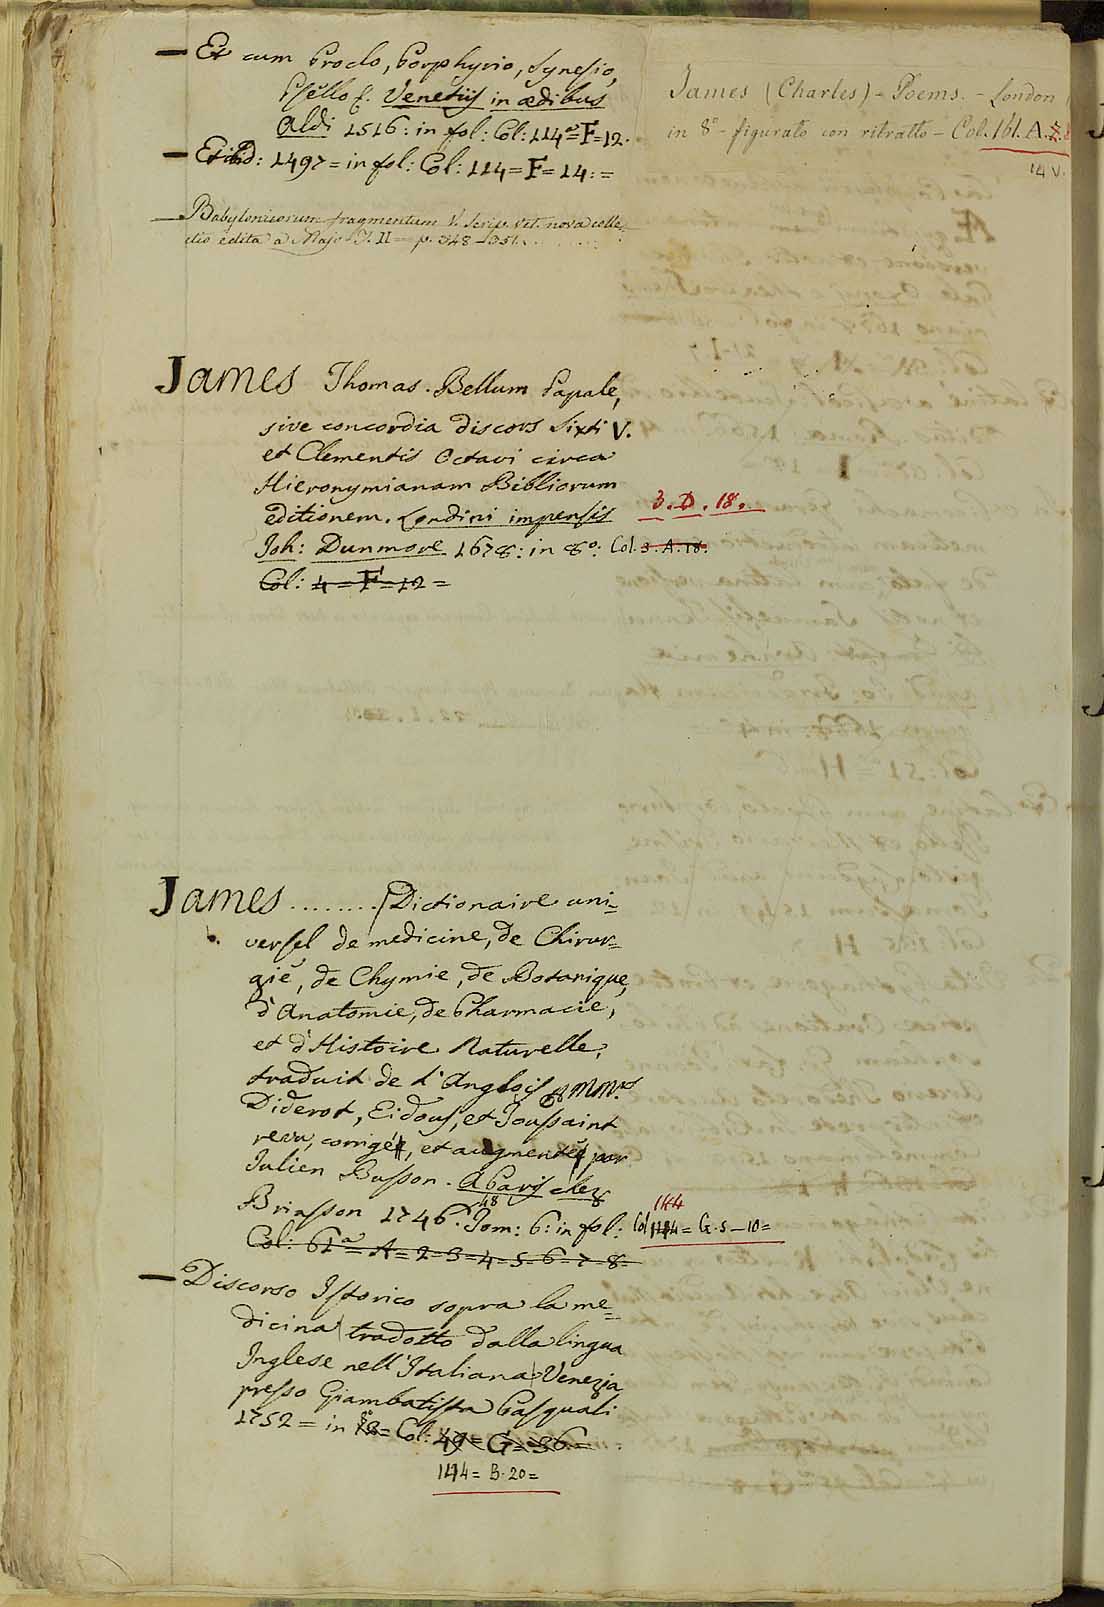 — Et cum Proclo, Porphyrio, Synesio,
Psello &. Venetiis in ædibus
Aldi 1516: in fol: Col: 114ª=F=12.
— Et ibid: 1497= in fol: Col: 114=F=14:=
— Babylonicorum fragmentum V. Scrip. Vet. nova colle-
ctio edita a Majo T. II — p. 348-351.
James (Charles) - Poems. - London
in 8º - figurato con ritratto - Col. 161. A.
14 V.
James Thomas. Bellum Papale,
sive concordia discors Sixti V.
et Clementis Octavi circa
Hieronymianam Bibliorum
editionem. Londini impensis
3. D. 18.
Joh: Dunmore 1678: in 8º: Col. 3. A. 18.
Col: 4=F=12=
James ........ Dictionaire uni-
versel de medicine, de Chirur=
gie, de Chymie, de Botanique,
d'Anatomie, de Pharmacie,
et d'Histoire Naturelle,
traduit de l'Anglois MM.rs
Diderot, Eidous, et Toussaint
revu, corrigé, et augmenté par
Julien Busson. A Paris chez
48
144
Briasson 1746. Tom: 6: in fol: Col = G. 5-10=
Col: 61ª=A=2-3-4-5-6-7-8-
— Discorso Istorico sopra la me=
dicina tradotto dalla lingua
Inglese nell'Italiana Venezia
presso Giambatista Pasquali
1752= in 8= Col: 49=G=36=
144= B. 20=